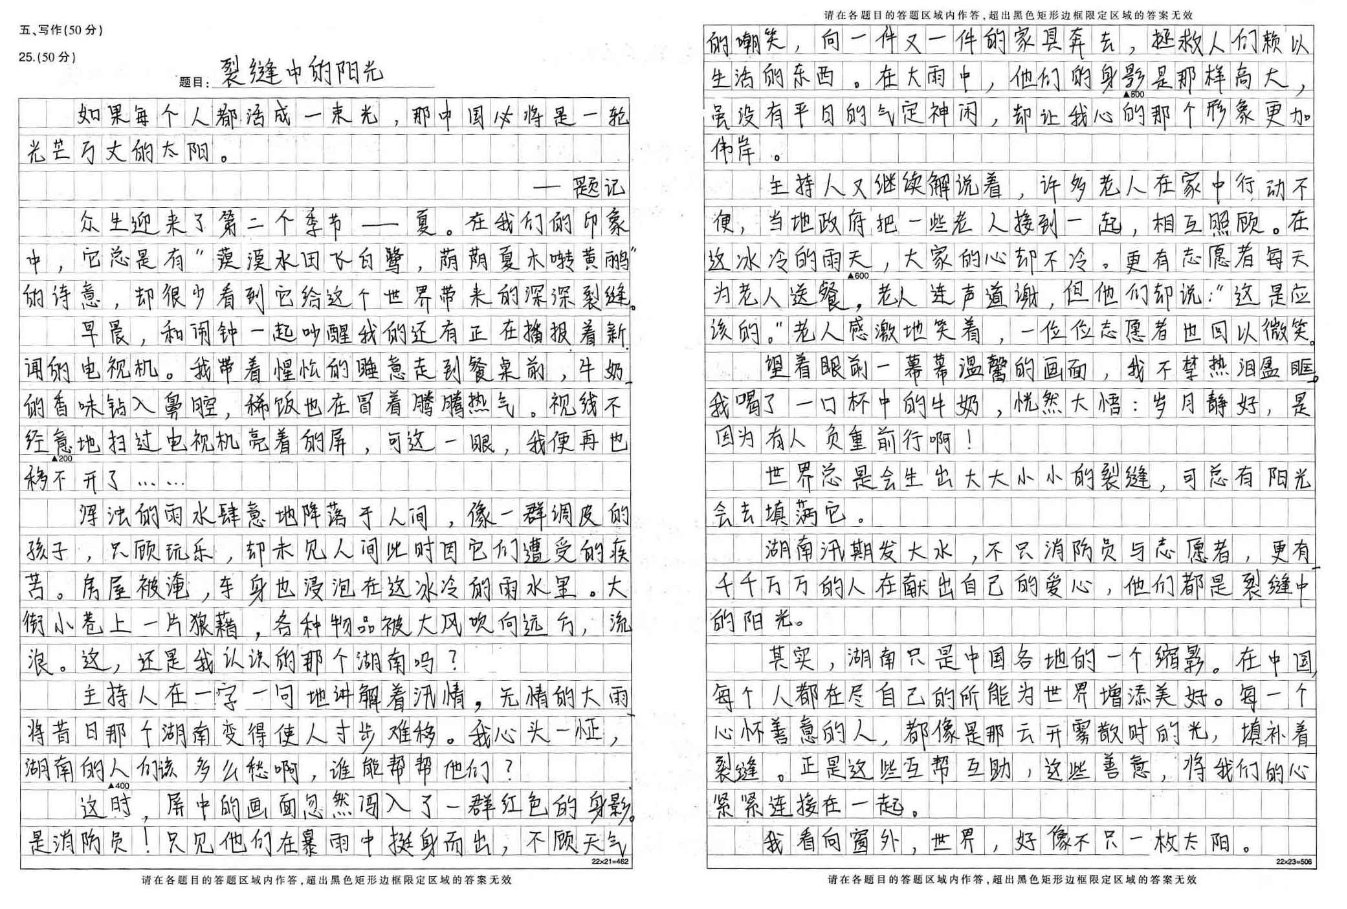 五、写作(50分)
25.(50分)
题目:裂缝中的阳光
如果每个人都活成一束光，那中国必将是一轮
光芒万丈的太阳。
—题记
众生迎来了第二个季节——夏。在我们的印象
中，它总是有“漠漠水田飞白鹭，荫荫夏木啭黄鹂”
的诗意，却很少看到它给这个世界带来的深深裂缝。
早晨，和闹钟一起吵醒我的还有正在播报着新
闻的电视机。我带着惺忪的睡意走到餐桌前，牛奶
的香味钻入鼻腔，稀饭也在冒着腾腾热气。视线不
经意地扫过电视机亮着的屏，可这一眼，我便再也
▲200
移不开了……
浑浊的雨水肆意地降落于人间，像一群调皮的
孩子，只顾玩乐，却未见人间此时因它们遭受的疾
苦。房屋被淹，车身也浸泡在这冰冷的雨水里。大
街小巷上一片狼藉，各种物品被大风吹向远方，流
浪。这，还是我认识的那个湖南吗？
主持人在一字一句地讲解着汛情。无情的大雨
将昔日那个湖南变得使人寸步难移。我心头一怔，
湖南的人们该多么愁啊，谁能帮帮他们？
▲400
这时，屏中的画面忽然闯入了一群红色的身影。
是消防员！只见他们在暴雨中挺身而出，不顾天气
22×21=462
请在各题目的答题区域内作答,超出黑色矩形边框限定区域的答案无效
请在各题目的答题区域内作答,超出黑色矩形边框限定区域的答案无效
的嘲笑，向一件又一件的家具奔去，拯救人们赖以
生活的东西。在大雨中，他们的身影是那样高大，
虽没有平日的气定神闲，却让我心的那个形象更加
伟岸。
主持人又继续解说着，许多老人在家中行动不
便，当地政府把一些老人接到一起，相互照顾。在
这冰冷的雨天，大家的心却不冷。更有志愿者每天
▲600
为老人送餐，老人连声道谢，但他们却说：“这是应
该的。”老人感激地笑着，一位位志愿者也回以微笑。
望着眼前一幕幕温馨的画面，我不禁热泪盈眶。
我喝了一口杯中的牛奶，恍然大悟：岁月静好，是
因为有人负重前行啊！
世界总是会生出大大小小的裂缝，可总有阳光
会去填满它。
湖南汛期发大水，不只消防员与志愿者，更有
千千万万的人在献出自己的爱心，他们都是裂缝中
的阳光。
其实，湖南只是中国各地的一个缩影。在中国，
每个人都在尽自己的所能为世界增添美好。每一个
心怀善意的人，都像是那云开雾散时的光，填补着
裂缝。正是这些互帮互助，这些善意，将我们的心
紧紧连接在一起。
我看向窗外，世界，好像不只一枚太阳。
22×23=506
请在各题目的答题区域内作答,超出黑色矩形边框限定区域的答案无效